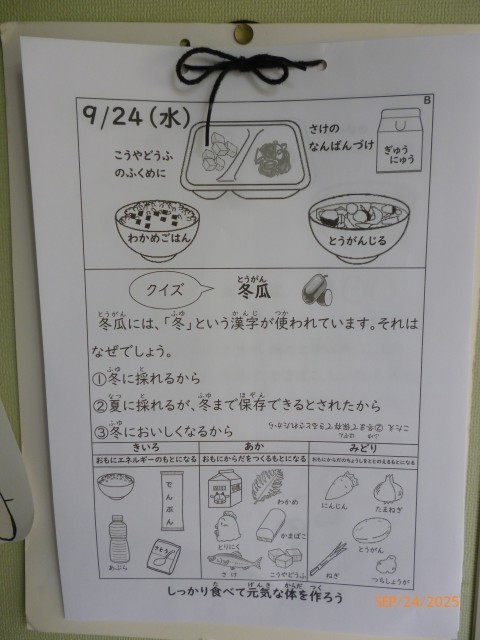 B
9/24(水)
さけの
なんばんづけ
こうやどうふ
のふくめに
ぎゅう
にゅう
わかめごはん
とうがんじる
クイズ
とうがん
冬瓜
とうがん ふゆ かんじ つか
冬瓜には、「冬」という漢字が使われています。それは
なぜでしょう。
ふゆ と
①冬に採れるから
なつ と ふゆ ほぞん
②夏に採れるが、冬まで保存できるとされたから
ふゆ
③冬においしくなるから
こたえ ②冬まで保存できるとされたから
きいろ
あか
みどり
おもにエネルギーのもとになる
おもにからだをつくるもとになる
おもにからだのちょうしをととのえるもとになる
でんぷん
あぶら
わかめ
とりにく
かまぼこ
さけ
こうやどうふ
にんじん
たまねぎ
とうがん
ねぎ
つちしょうが
た げんき からだ つく
しっかり食べて元気な体を作ろう
9/24/2025